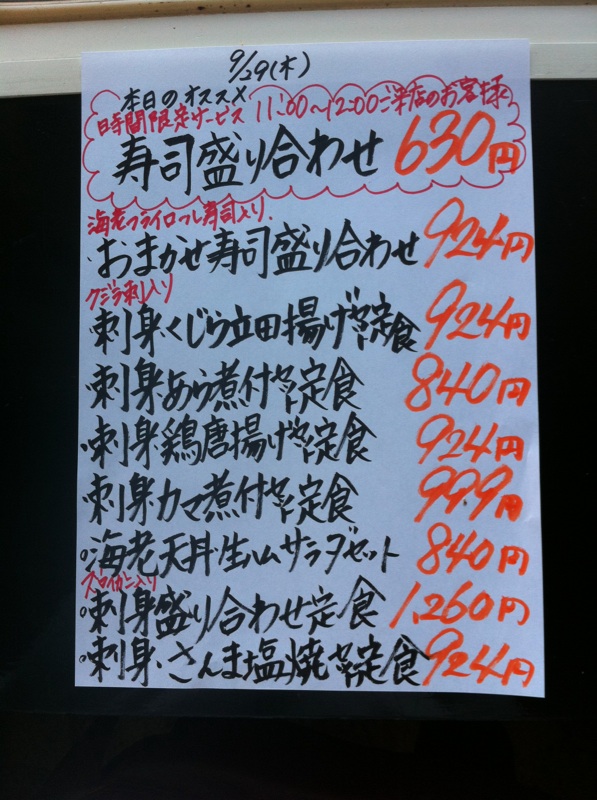 9/29(木)
本日のオススメ
時間限定サービス 11:00~12:00ご来店のお客様
寿司盛り合わせ 630円
海老フライロール寿司入り.
・おまかせ寿司盛り合わせ 924円
クジラ刺入り
・刺身・くじら立田揚げセット定食 924円
・刺身・あら煮付セット定食 840円
・刺身・鶏唐揚げセット定食 924円
・刺身・カマ煮付セット定食 999円
・海老天丼・生ハムサラダセット 840円
ズワイガニ入り
・刺身盛り合わせ定食 1,260円
・刺身・さんま塩焼セット定食 924円